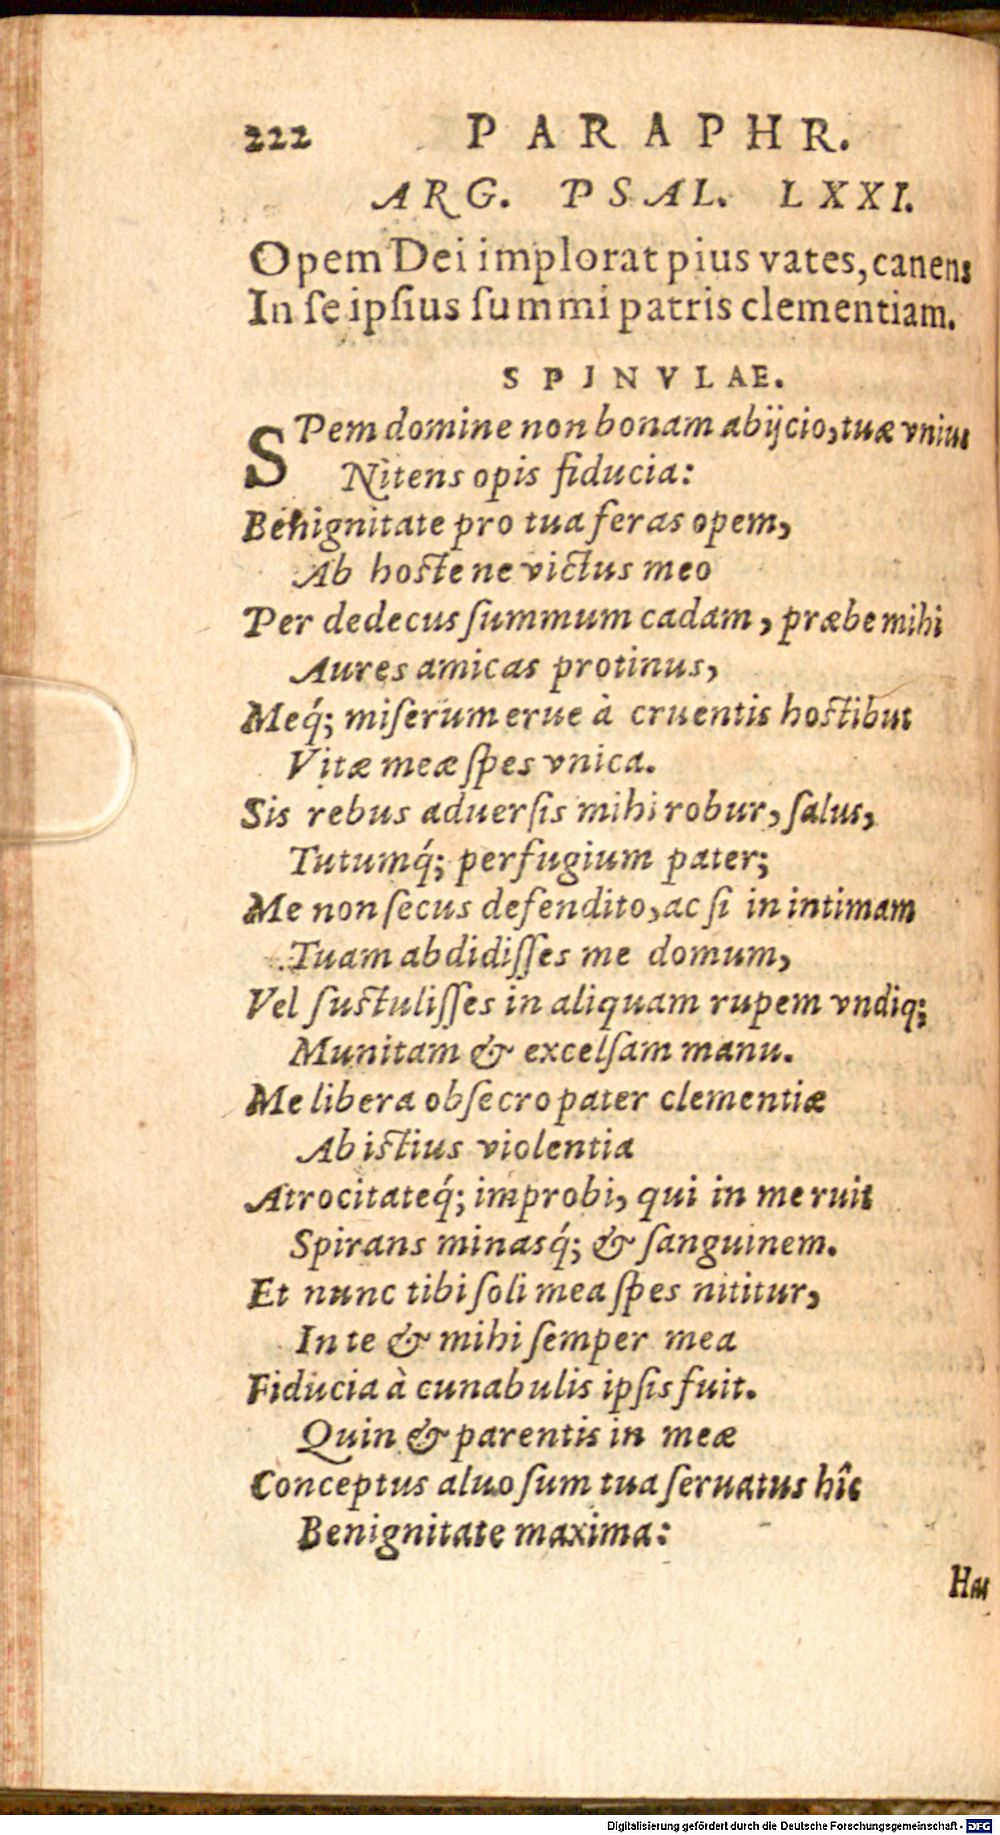 222 PARAPHR.
ARG. PSAL. LXXI.
Opem Dei implorat pius vates, canens
In ſe ipſius ſummi patris clementiam.
SPINVLAE.
SPem domine non bonam abijcio, tuæ vnius
Nitens opis fiducia:
Benignitate pro tua feras opem,
Ab hoste ne victus meo
Per dedecus ſummum cadam, præbe mihi
Aures amicas protinus,
Meq́; miſerum erue à cruentis hostibus
Vitæ meæ ſpes vnica.
Sis rebus aduerſis mihi robur, ſalus,
Tutumq́; perfugium pater;
Me non ſecus defendito, ac ſi in intimam
Tuam abdidiſſes me domum,
Vel ſustuliſſes in aliquam rupem vndiq;
Munitam & excelſam manu.
Me libera obſecro pater clementiæ
Ab istius violentia
Atrocitateq́; improbi, qui in me ruit
Spirans minasq́; & ſanguinem.
Et nunc tibi ſoli mea ſpes nititur,
In te & mihi ſemper mea
Fiducia à cunabulis ipſis fuit.
Quin & parentis in meæ
Conceptus aluo ſum tua ſeruatus hîc
Benignitate maxima:
Digitalisierung gefördert durch die Deutsche Forschungsgemeinschaft - DFG